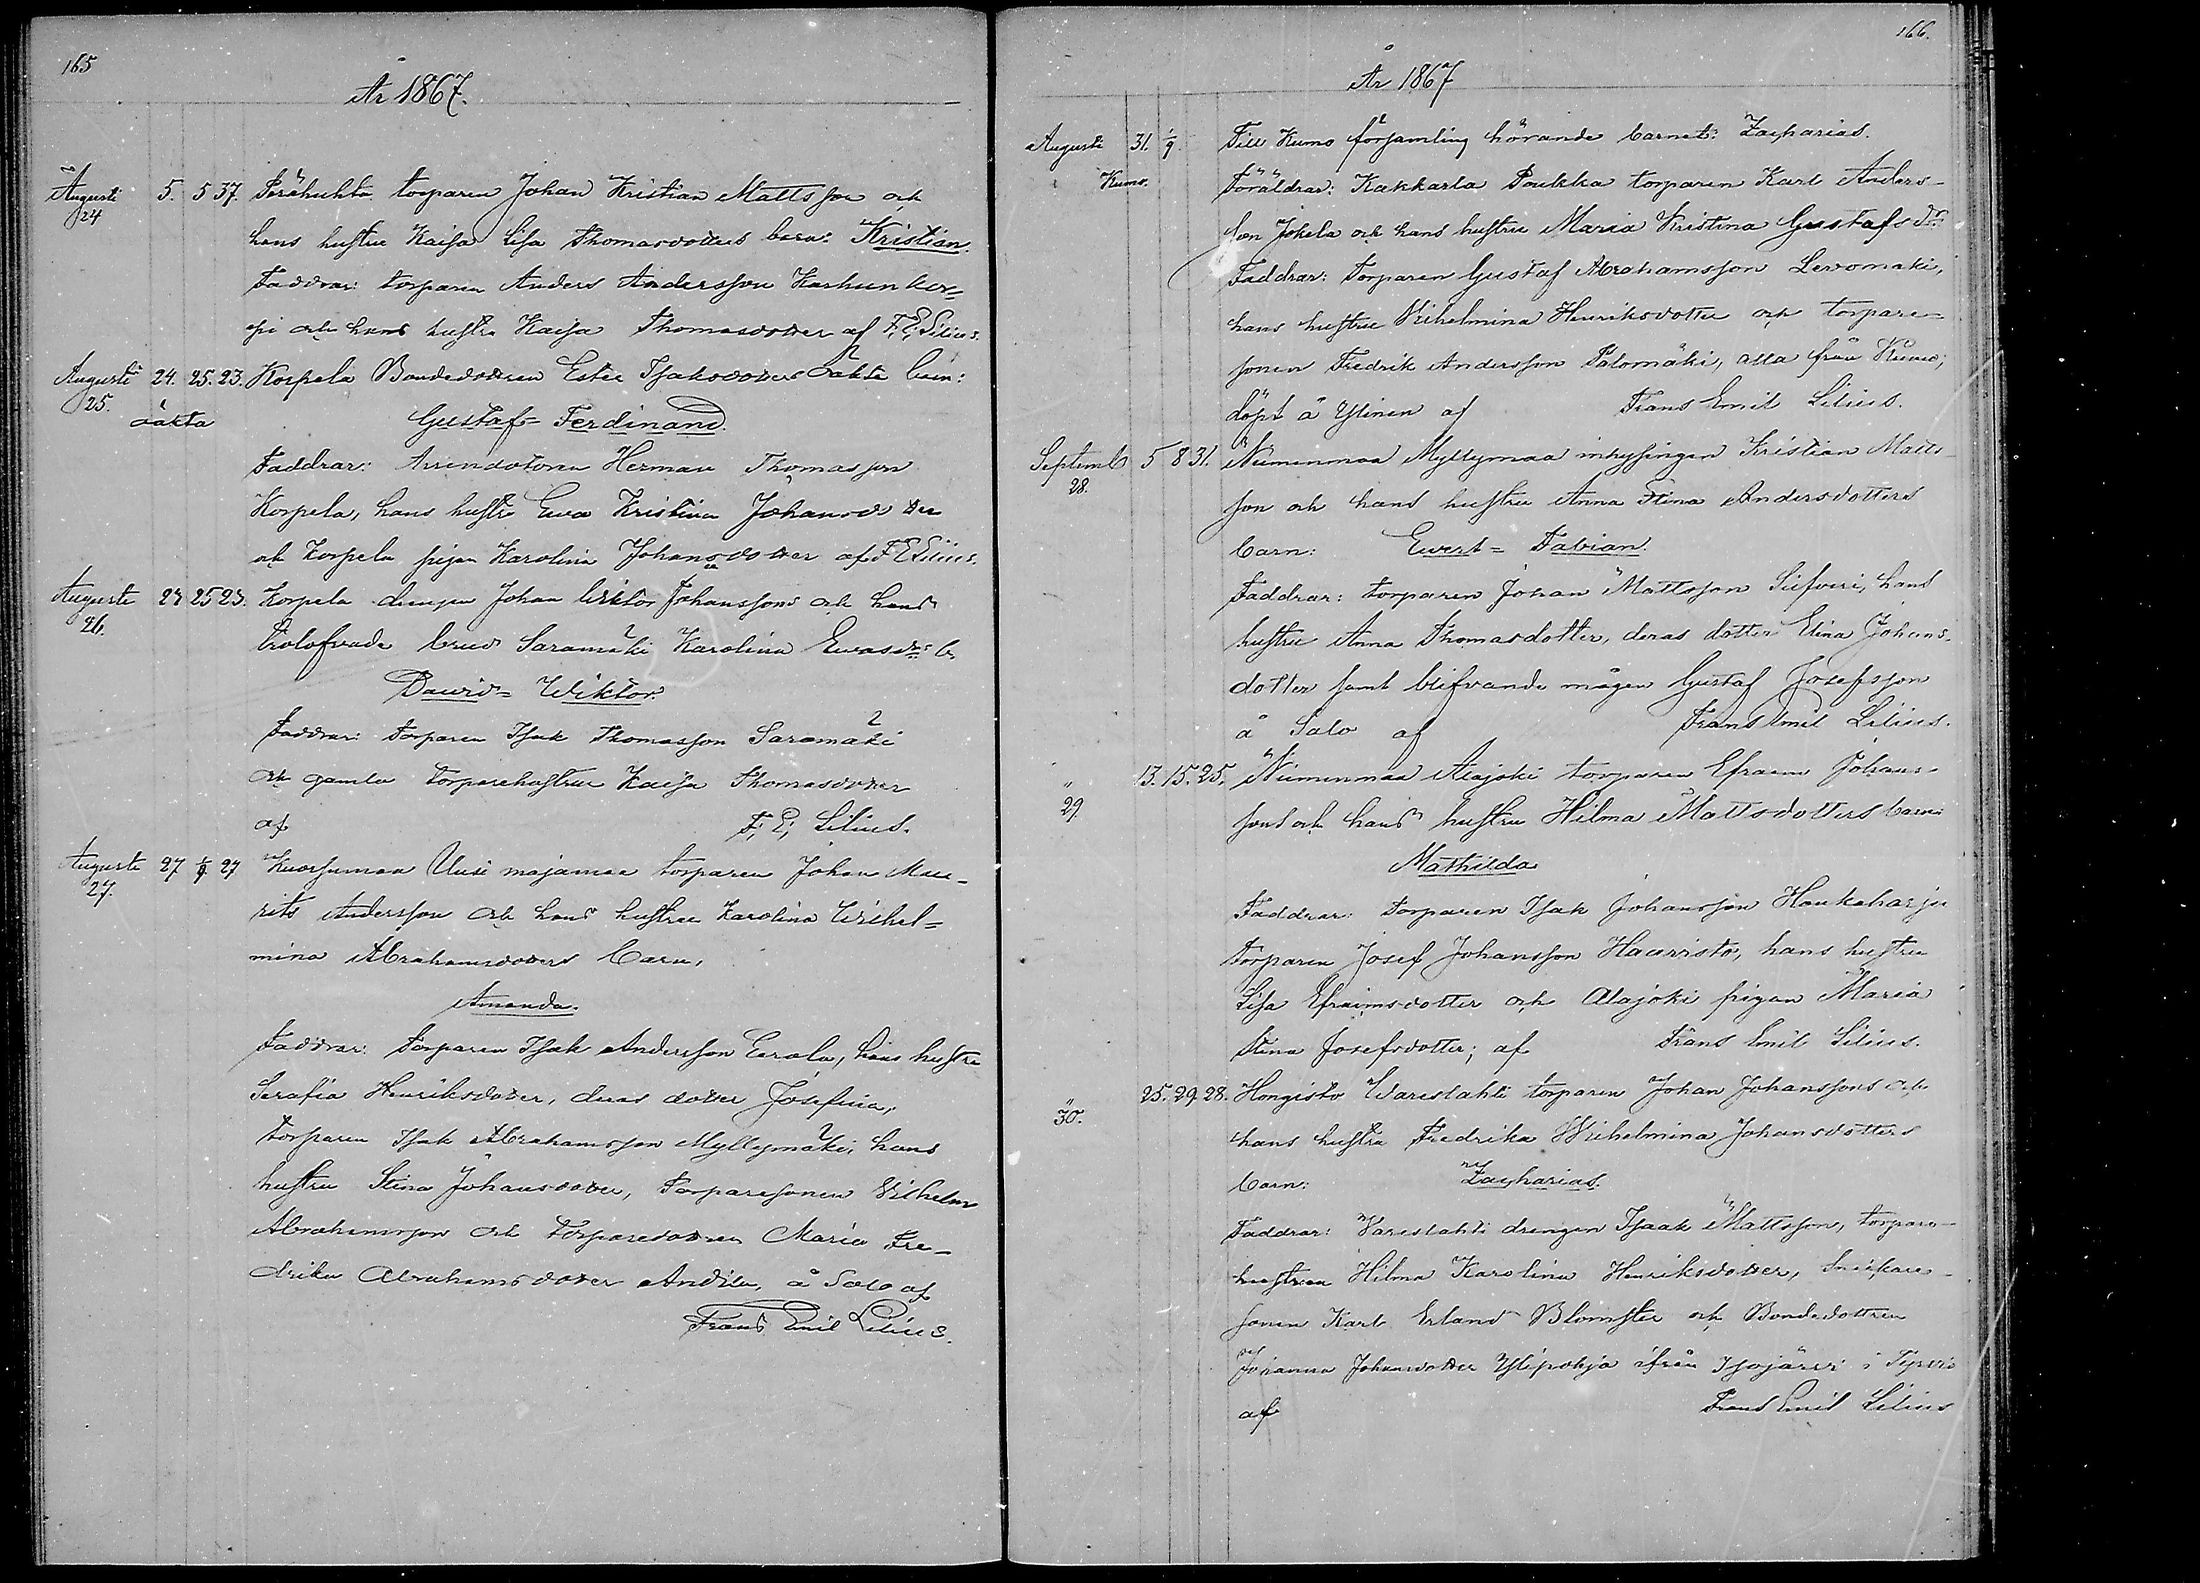 165
År 1867.
Augusti 5. 5 37. Perähuhta torparen Johan Kristian Mattsson och
24
hans hustru Kaisa Lisa Thomasdotters barn: Kristian.
Faddrar: torparen Anders Andersson Karhunkor=
pi och hans hustru Kaisa Thomasdotter af F. E. Lilius.
Augusti 24. 25. 23. Korpela Bondedottren Ester Isaksdotters oäkta barn:
25.
oäkta Gustaf=Ferdinand.
Faddrar: Arrendatoren Herman Thomasson
Korpela, hans hustru Eva Kristina Johansdotter
och Korpela pigan Karolina Johansdotter af F E Lilius.
Augusti 24 25 23. Korpela drengen Johan Wiktor Johanssons och hans
26.
trolofvade brud Saramäki Karolina Ewasdr: b.
Dawid=Wiktor.
Faddrar: torparen Isak Thomasson Saramäki
och gamla torparehustrun Kaisa Thomasdotter
af F. E. Lilius.
Augusti 27 1/9 27 Kuorsumaa Uusi majamaa torparen Johan Mau-
27.
rits Andersson och hans hustru Karolina Wilhel=
mina Abrahamsdotters barn,
Amanda.
Faddrar: Torparen Isak Andersson Eerola, hans hustru
Serafia Henriksdotter, deras dotter Josefina,
torparen Isak Abrahamsson Myllymäki, hans
hustru Stina Johansdotter, Torparesonen Vilhelm
Abrahamsson och Torparedottren Maria Fre-
drika Abrahamsdotter Andila, å Salo af
Frans Emil Lilius.
166.
År 1867
Augusti 31. 1/9. Till Kumo församling hörande barnet: Zacharias.
Kumo.
Föräldrar: Kakkarla Poukka torparen Karl Anders-
son Jokela och hans hustru Maria Kristina Gustafs dr:
Faddrar: Torparen Gustaf Abrahamsson Levomäki,
hans hustru Vilhelmina Henriksdotter och torpare=
sonen Fredrik Andersson Palomäki, alla från Kumo;
döpt å Ylinen af Frans Emil Lilius.
Septemb 5 8 31. Niemenmaa Myllymaa inhysingen Kristian Matts-
28.
son och hans hustru Anna Stina Andersdotters
barn: Evert=Fabian.
Faddrar: torparen Johan Mattsson Siefveri, hans
hustru Anna Thomasdotter, deras dotter Elina Johans-
dotter samt blifvande mågen Gustaf Josefsson
å Salo af Frans Emil Lilius.
" 13. 15. 25. Niemenmaa Alajoki torparen Efraim Johans-
29
sons och hans hustru Hilma Mattsdotters barn:
Mathilda
Faddrar: torparen Isak Johansson Haukaharju
torparen Josef Johansson Haavisto, hans hustru
Lisa Efraimsdotter och Alajoki pigan Maria
Stina Josefsdotter; af Frans Emil Lilius.
" 25. 29. 28. Hongisto Wareslahti torparen Johan Johanssons och
30.
hans hustru Fredrika Wilhelmina Johansdotters
barn: Zacharias.
Faddrar: Vareslahti drengen Isaak Mattsson, torpare-
hustrun Hilma Karolina Henriksdotter, Snickare-
sonen Karl Erland Blomster och Bondedottren
Johanna Johansdotter Ylipohja ifrån Isojärvi i
af Frans Emil Lilius